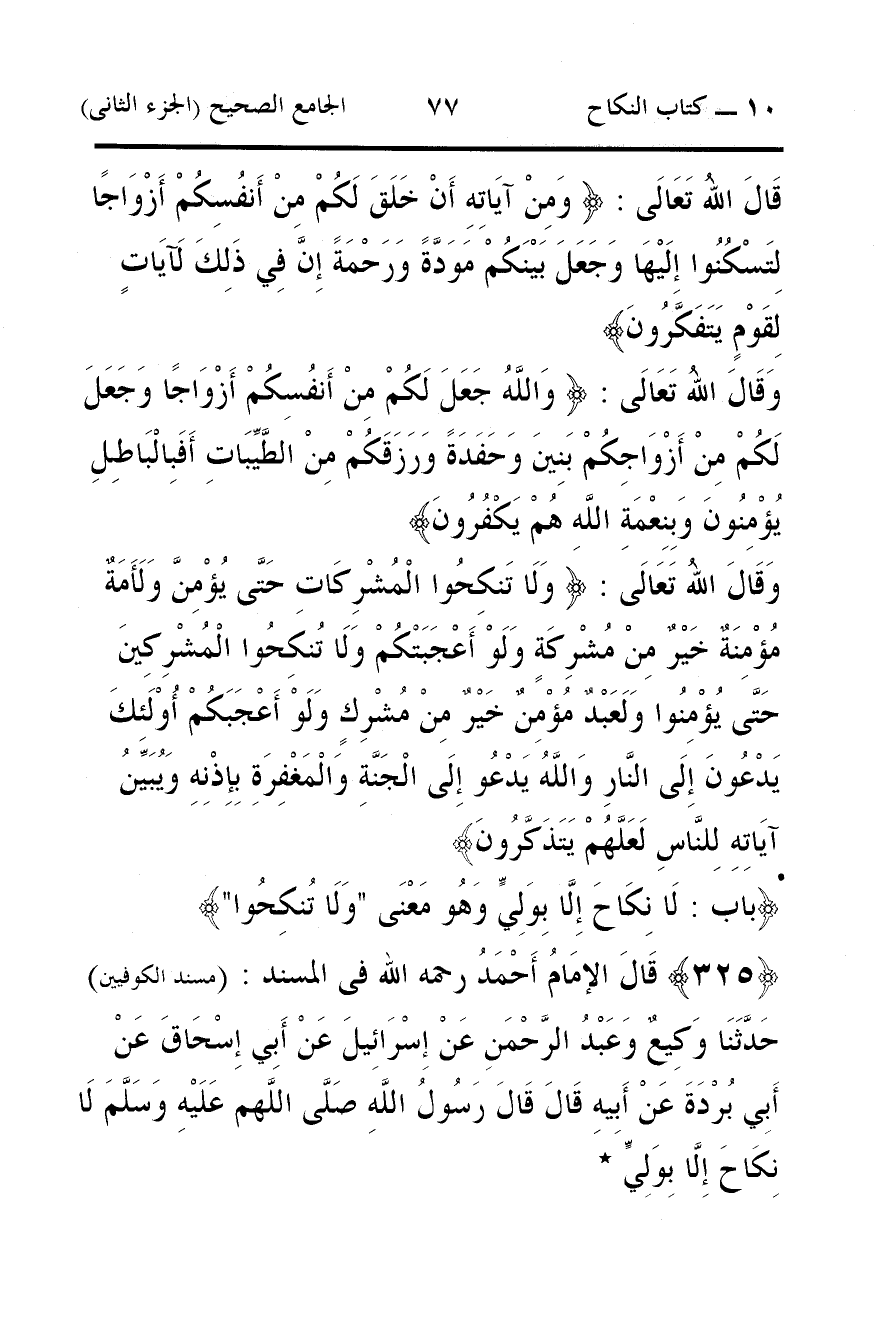 ١٠ ــ كتاب النكاح ٧٧ الجامع الصحيح (الجزء الثانى)
قَالَ اللهُ تَعَالَى : ﴿ وَمِنْ آيَاتِهِ أَنْ خَلَقَ لَكُمْ مِنْ أَنفُسِكُمْ أَزْوَاجًا
لِتَسْكُنُوا إِلَيْهَا وَجَعَلَ بَيْنَكُمْ مَوَدَّةً وَرَحْمَةً إِنَّ فِي ذَلِكَ لَآيَاتٍ
لِقَوْمٍ يَتَفَكَّرُونَ﴾
وَقَالَ اللهُ تَعَالَى : ﴿ وَاللَّهُ جَعَلَ لَكُمْ مِنْ أَنفُسِكُمْ أَزْوَاجًا وَجَعَلَ
لَكُمْ مِنْ أَزْوَاجِكُمْ بَنِينَ وَحَفَدَةً وَرَزَقَكُمْ مِنْ الطَّيِّبَاتِ أَفَبِالْبَاطِلِ
يُؤْمِنُونَ وَبِنِعْمَةِ اللَّهِ هُمْ يَكْفُرُونَ﴾
وَقَالَ اللهُ تَعَالَى : ﴿ وَلَا تَنكِحُوا الْمُشْرِكَاتِ حَتَّى يُؤْمِنَّ وَلَأَمَةٌ
مُؤْمِنَةٌ خَيْرٌ مِنْ مُشْرِكَةٍ وَلَوْ أَعْجَبَتْكُمْ وَلَا تُنكِحُوا الْمُشْرِكِينَ
حَتَّى يُؤْمِنُوا وَلَعَبْدٌ مُؤْمِنٌ خَيْرٌ مِنْ مُشْرِكٍ وَلَوْ أَعْجَبَكُمْ أُوْلَئِكَ
يَدْعُونَ إِلَى النَّارِ وَاللَّهُ يَدْعُو إِلَى الْجَنَّةِ وَالْمَغْفِرَةِ بِإِذْنِهِ وَيُبَيِّنُ
آيَاتِهِ لِلنَّاسِ لَعَلَّهُمْ يَتَذَكَّرُونَ﴾
﴿باب : لَا نِكَاحَ إِلَّا بِوَلِيٍّ وَهُو مَعْنَى "وَلَا تُنكِحُوا"﴾
﴿٣٢٥﴾ قَالَ الإِمَامُ أَحْمَدُ رحمه الله فى المسند : (مسند الكوفيين)
حَدَّثَنَا وَكِيعٌ وَعَبْدُ الرَّحْمَنِ عَنْ إِسْرَائِيلَ عَنْ أَبِي إِسْحَاقَ عَنْ
أَبِي بُرْدَةَ عَنْ أَبِيهِ قَالَ قَالَ رَسُولُ اللَّهِ صَلَّى اللَّهم عَلَيْهِ وَسَلَّمَ لَا
نِكَاحَ إِلَّا بِوَلِيٍّ *